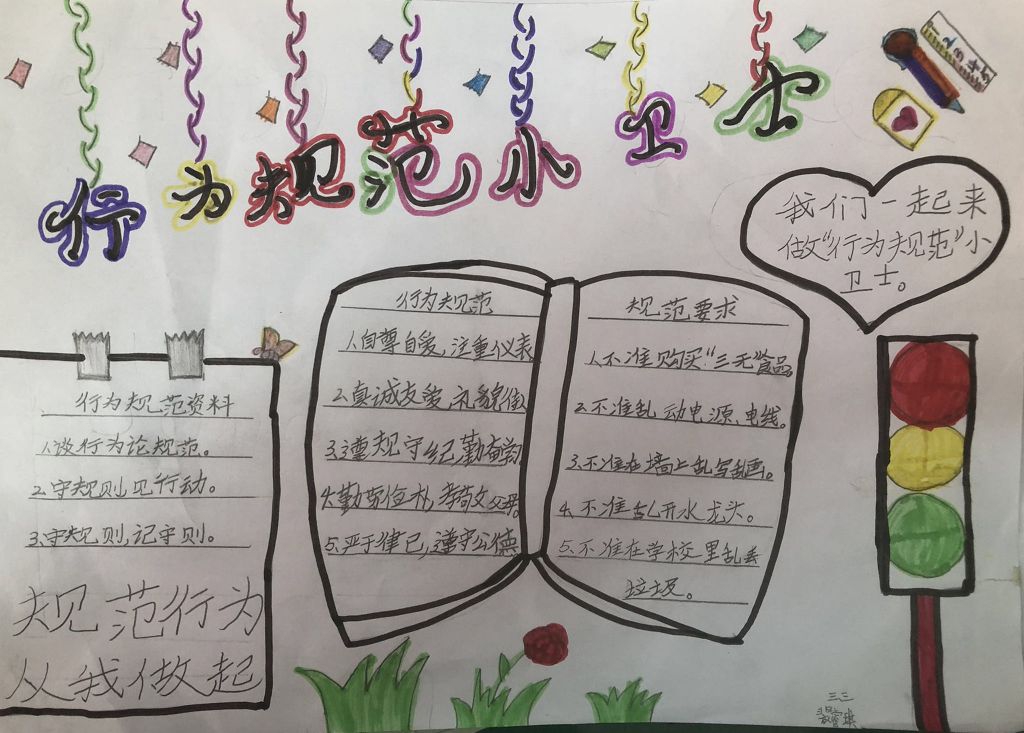 行为规范小卫士
2 3 4 5
我们一起来
做“行为规范”小
卫士。
行为规范
1.自尊自爱,注重仪表
2.真诚友爱,礼貌待
3.遵规守纪勤奋学
4.勤劳俭朴,孝敬父母。
5.严于律已,遵守公德
规范要求
1.不准购买“三无”食品。
2.不准乱动电源、电线。
3.不准在墙上乱写乱画。
4.不准乱开水龙头。
5.不准在学校里乱丢
垃圾。
行为规范资料
1.谈行为论规范。
2.守规则见行动。
3.守规则,记守则。
规范行为
从我做起
三三